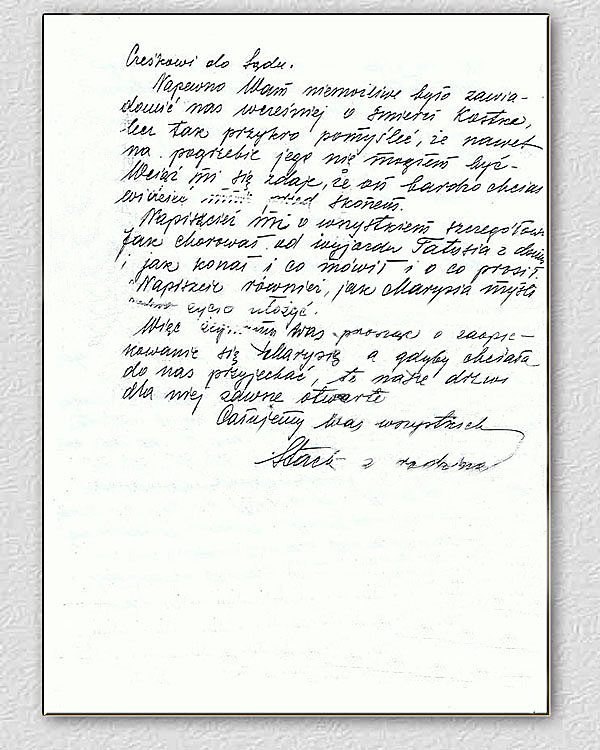 Cześkowi do Sądu.
Napewno Wam niemożliwe było zawia-
domić nas wcześniej o śmierci Kostka,
lecz tak przykro pomyśleć, że nawet
na pogrzebie jego nie mogłem być.
Wciąż mi się zdaje, że on bardzo chciał
widzieć przed skonem.
Napiszcież mi o wszystkiem szczegółowo
jak chorował od wyjazdu Tatusia z
i jak konał i co mówił i o co prosił.
Napiszcie również, jak Marysia myśli
życie ułożyć.
Więc Was prosząc o zaopie-
kowanie się Marysią a gdyby chciała
do nas przyjechać, to nasze drzwi
dla niej zawsze otwarte
Całujemy Was wszystkich
Stach z rodziną